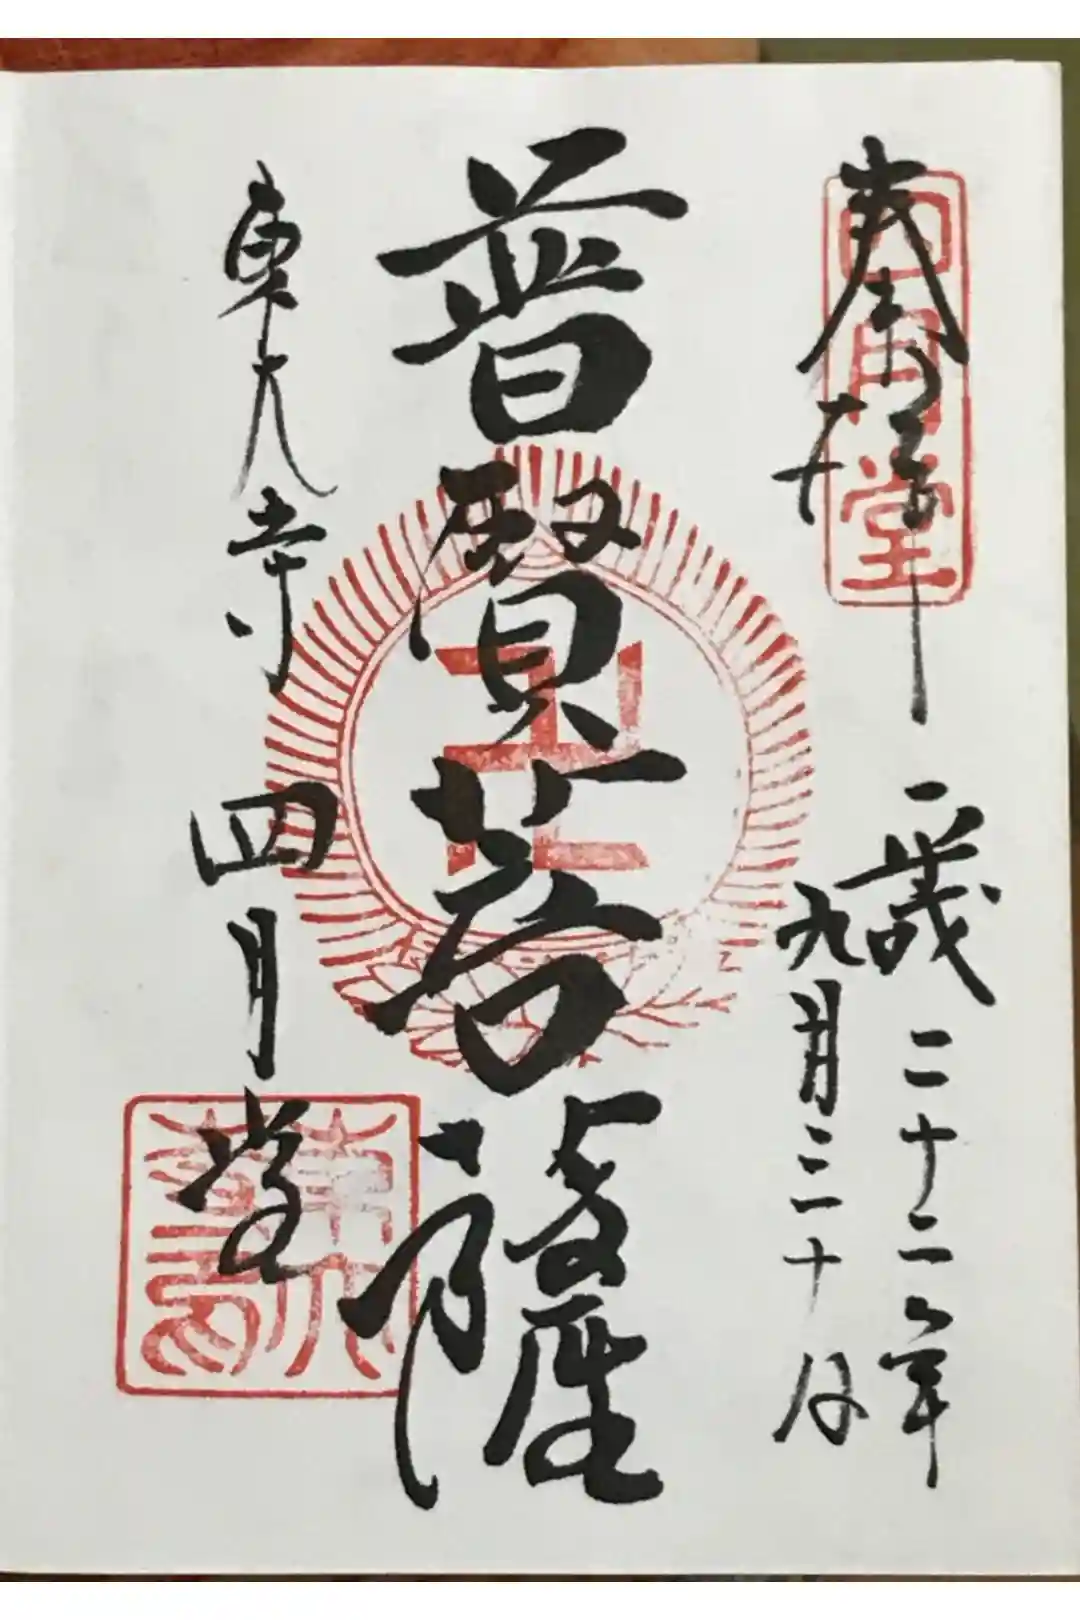 奉拝
四月堂
平成二十二年
九月三十日
普賢菩薩
東大寺
四月堂